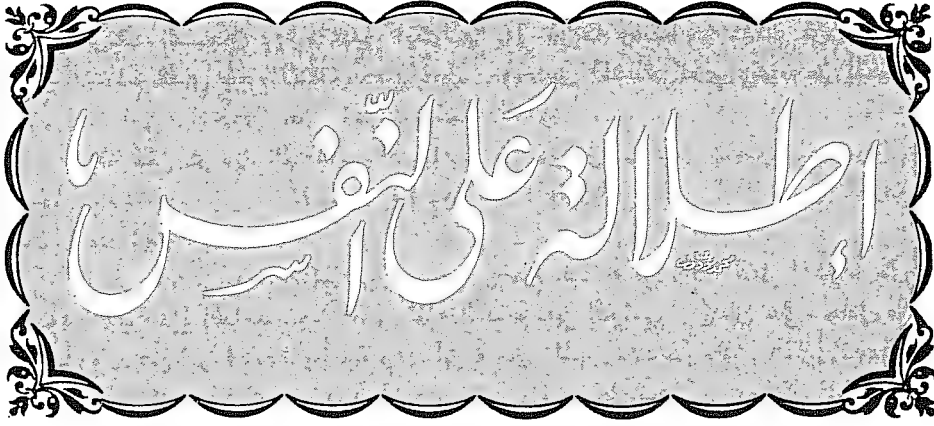 إطلالة عَلى النّفس